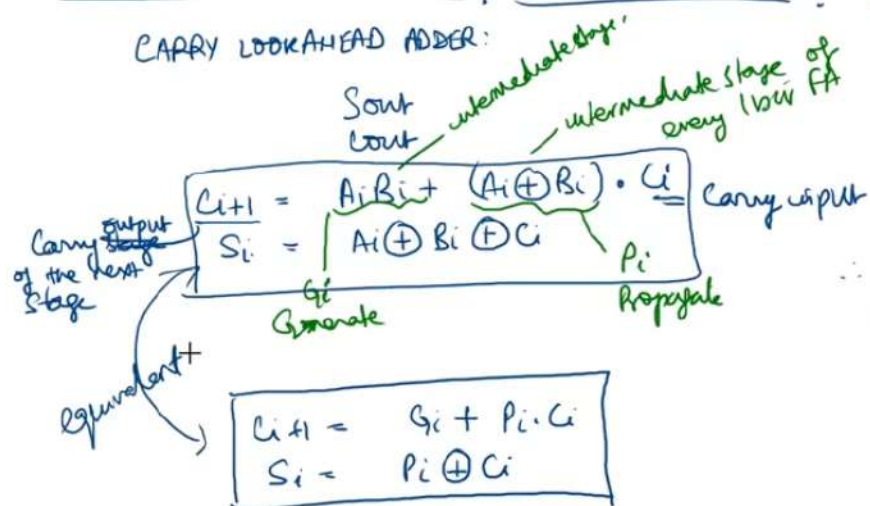 CARRY LOOKAHEAD ADDER:
intermediate stage.
intermediate stage of
every 1 bit FA
Sout
Cout
Ci+1 = AiBi + (Ai ⊕ Bi) · Ci
Carry input
Carry output
of the next
stage
Si = Ai ⊕ Bi ⊕ Ci
Gi
Generate
Pi
Propagate
equivalent
Ci+1 = Gi + Pi.Ci
Si = Pi ⊕ Ci